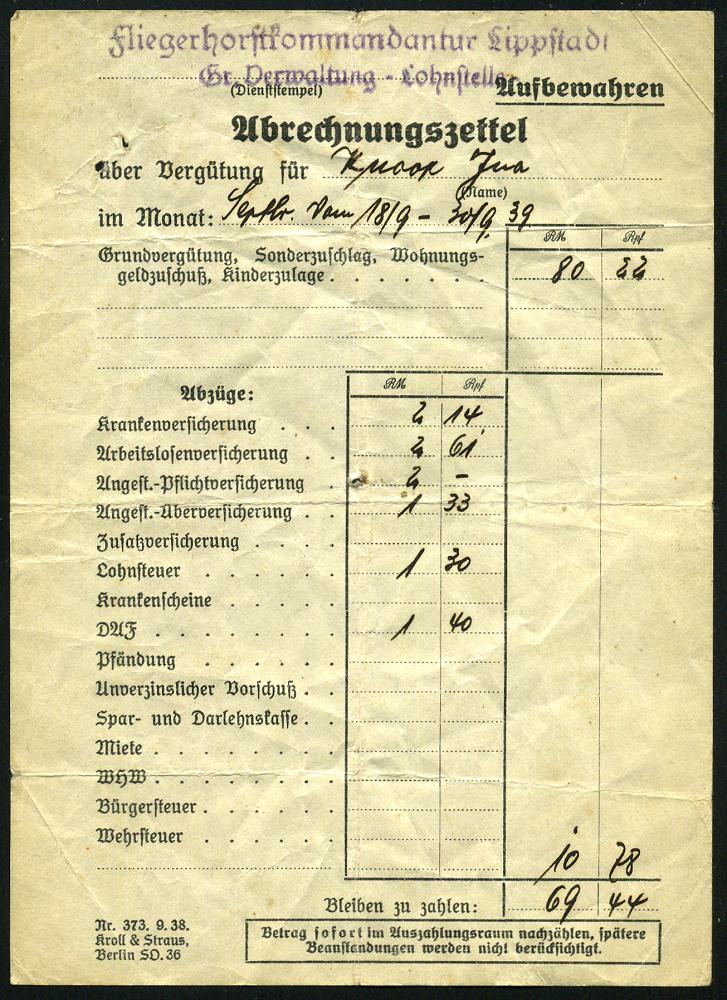 Fliegerhorstkommandantur Lippstadt
Gr. Verwaltung - Lohnstelle
(Dienststempel)
Aufbewahren
Abrechnungszettel
über Vergütung für Knoop Ina
(Name)
im Monat: Septbr. Vom 18/9 - 30/9. 39
RM Rpf
Grundvergütung, Sonderzuschlag, Wohnungs-
geldzuschuß, Kinderzulage . . . . . . . 80 22
Abzüge: RM Rpf
Krankenversicherung . . . 2 14
Arbeitslosenversicherung . . 2 61
Angest.-Pflichtversicherung . 2 -
Angest.-Überversicherung . . 1 33
Zusatzversicherung . . . .
Lohnsteuer . . . . . . 1 30
Krankenscheine . . . . .
DAF . . . . . . . . 1 40
Pfändung . . . . . .
Unverzinslicher Vorschuß . .
Spar- und Darlehnskasse . .
Miete . . . . . . . .
WHW . . . . . . . .
Bürgersteuer . . . . . .
Wehrsteuer . . . . . .
10 78
Bleiben zu zahlen: 69 44
Nr. 373. 9. 38.
Kroll & Straus,
Berlin SO. 36
Betrag sofort im Auszahlungsraum nachzählen, spätere
Beanstandungen werden nicht berücksichtigt.